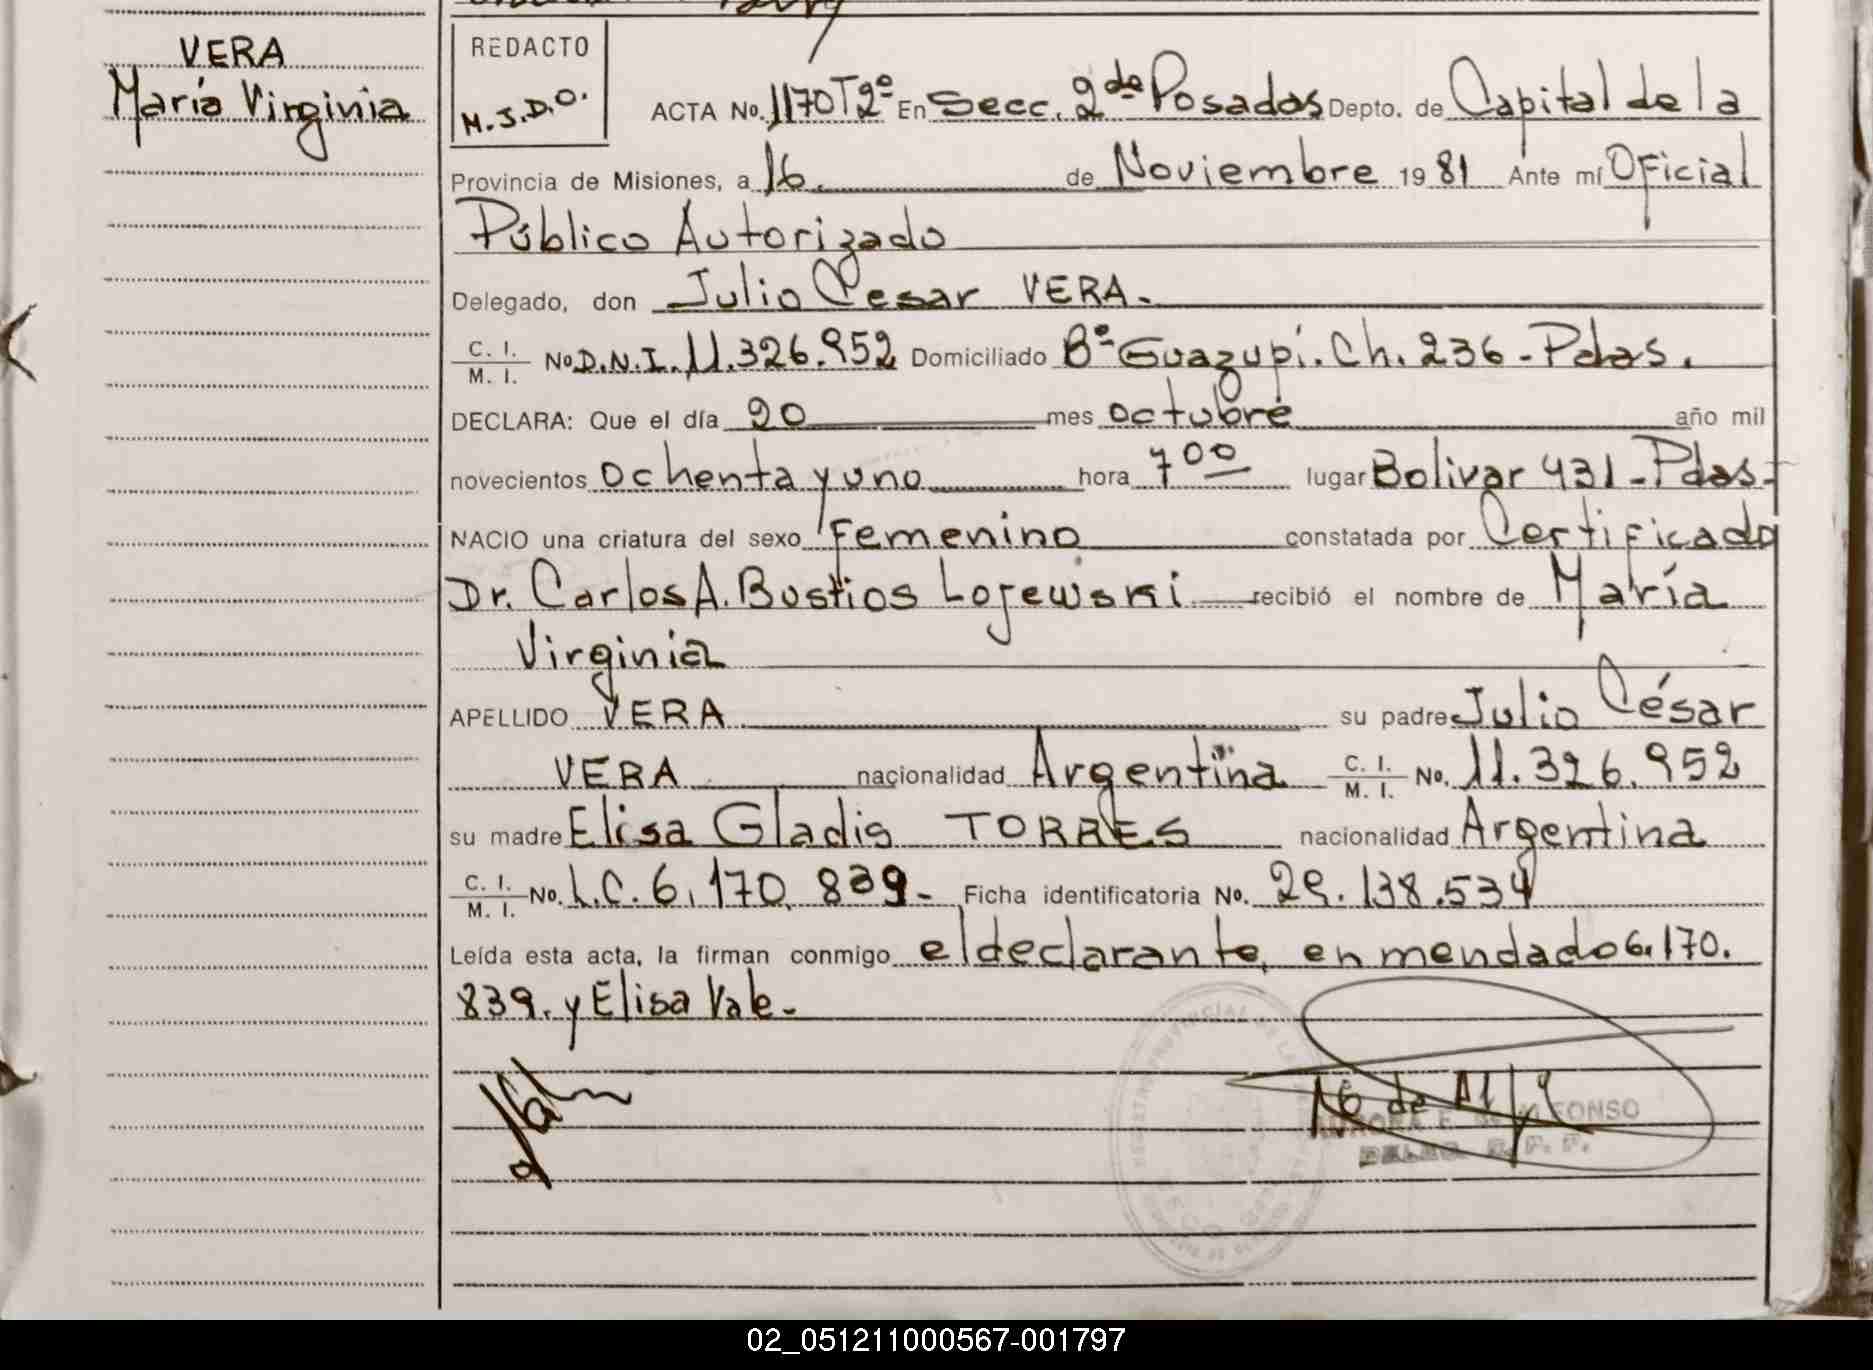 VERA
María Virginia
REDACTO
M.J.D.O.
ACTA No. 1170 T2º En Secc. 2da Posadas Depto. de Capital de la
Provincia de Misiones, a 16. de Noviembre 1981 Ante mí Oficial
Público Autorizado
Delegado, don Julio Cesar VERA.
C. I. / M. I. No D.N.I. 11.326.952 Domiciliado Bº Guazupi. Ch. 236 - Pdas.
DECLARA: Que el día 20 mes octubre año mil
novecientos ochenta y uno hora 7 00 lugar Bolivar 431 - Pdas -
NACIO una criatura del sexo Femenino constatada por Certificado
Dr. Carlos A. Bustios Lojewski recibió el nombre de María
Virginia
APELLIDO VERA su padre Julio César
VERA nacionalidad Argentina C. I. / M. I. No. 11.326.952
su madre Elisa Gladis TORRES nacionalidad Argentina
C. I. / M. I. No. L.C. 6.170.839 - Ficha identificatoria No. 29.138.534
Leída esta acta, la firman conmigo el declarante, enmendado 6.170.
839. y Elisa Vale -
02_051211000567-001797